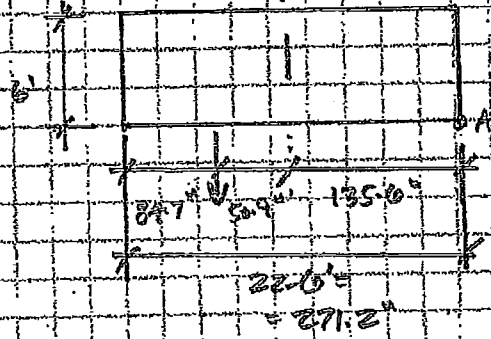 6'
A
84.7" 50.9" 135.6"
22.6'=
= 271.2"